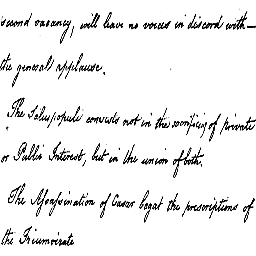 second vacancy, will leave no voices in discord with—
the general applause.
"The Salus populi consists not in the sacrificing of private
or Public Interest, but in the union of both.
The Assassination of Cæsar begat the proscriptions of
the Triumvirate